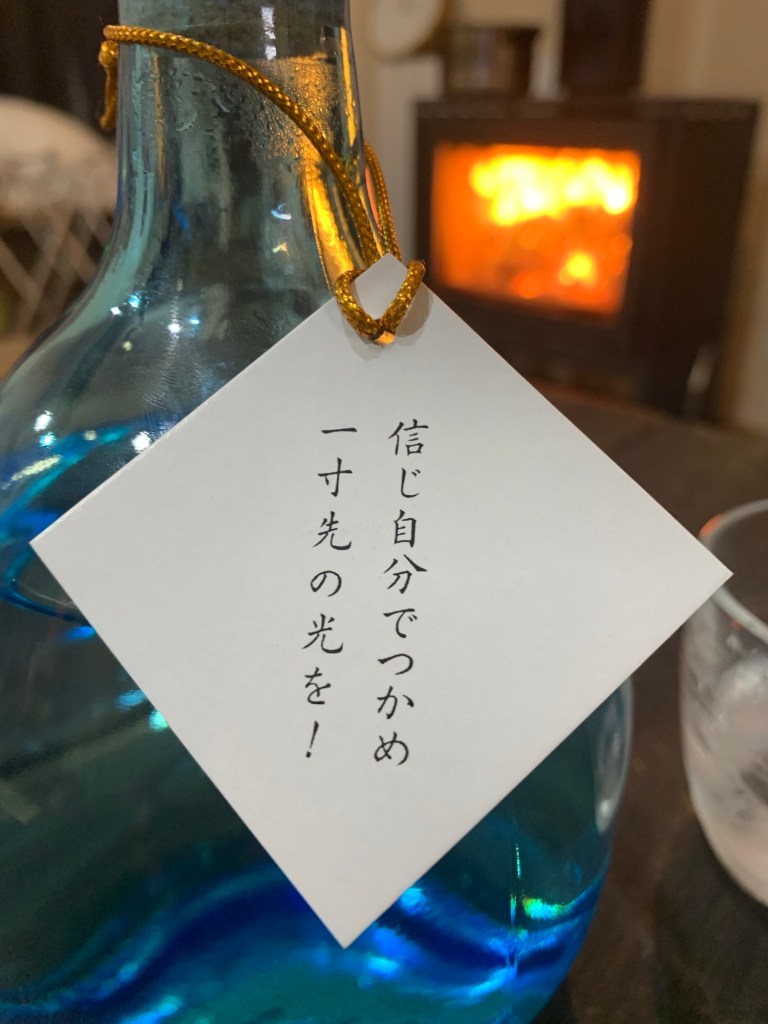 信じ自分でつかめ
一寸先の光を！